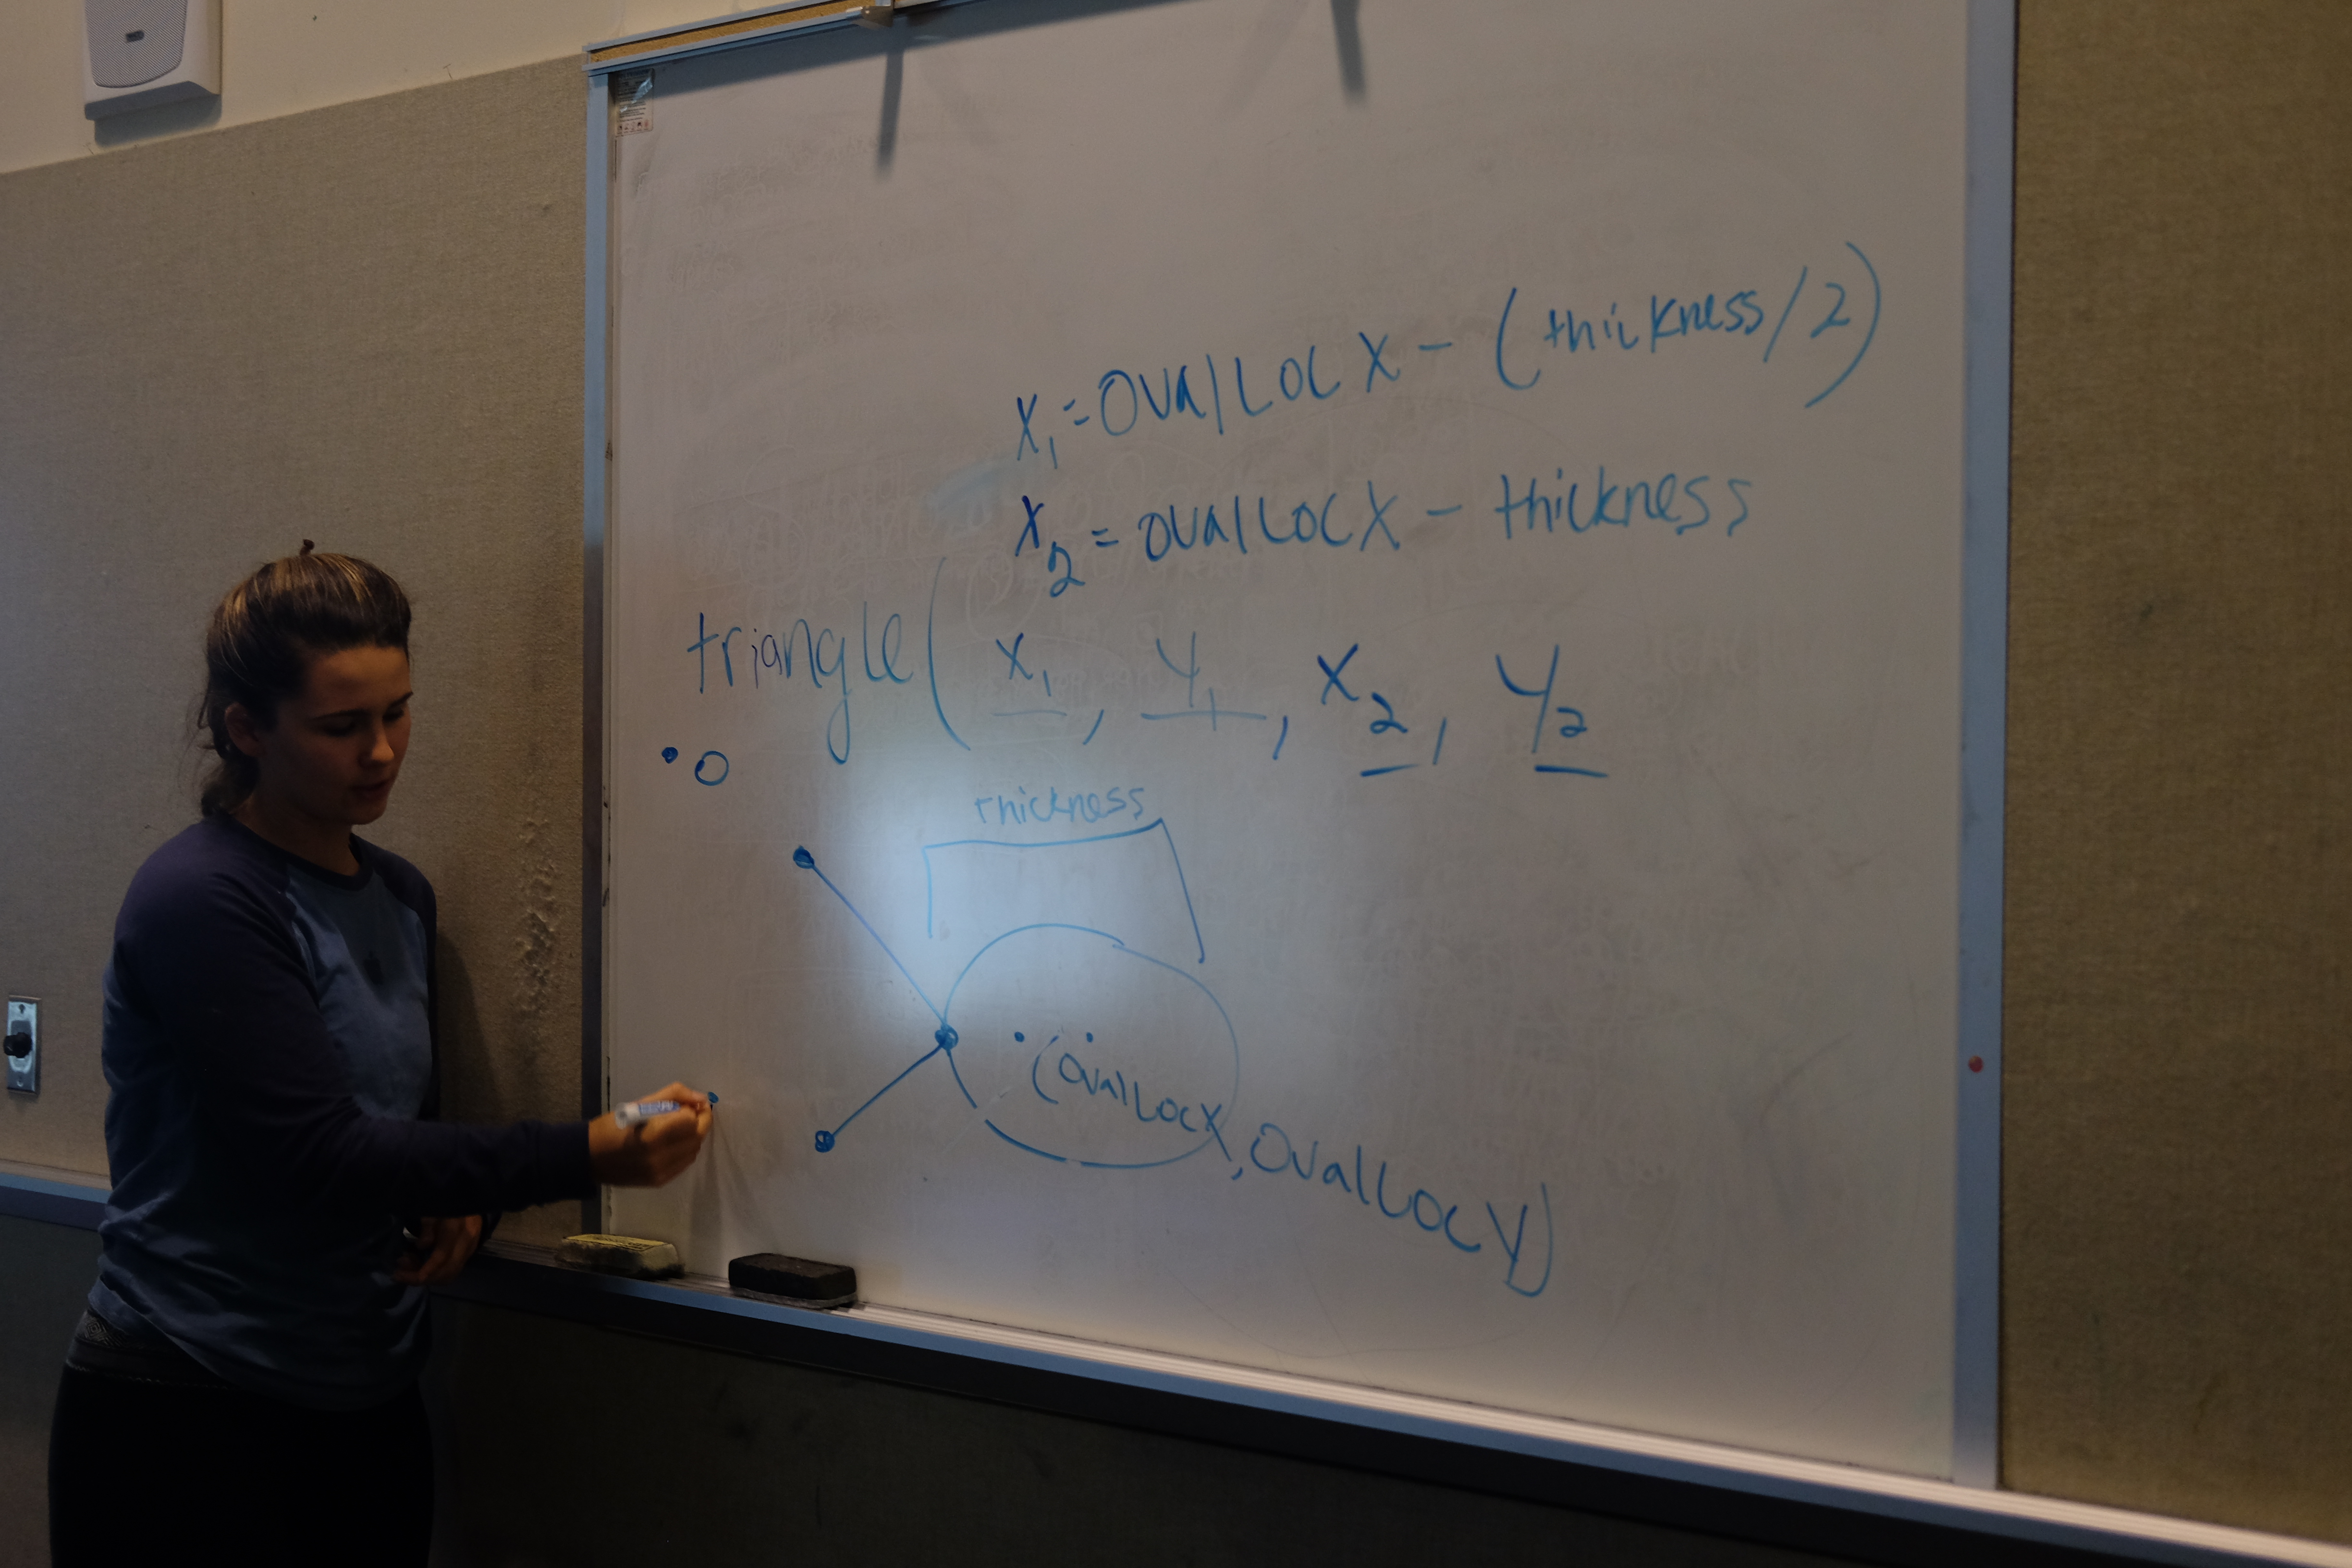 x₁ = OvalLocX - (thickness/2)
x₂ = ovalLocX - thickness
triangle( x₁, y₁, x₂, y₂
thickness
(OvalLocX, OvalLocY)